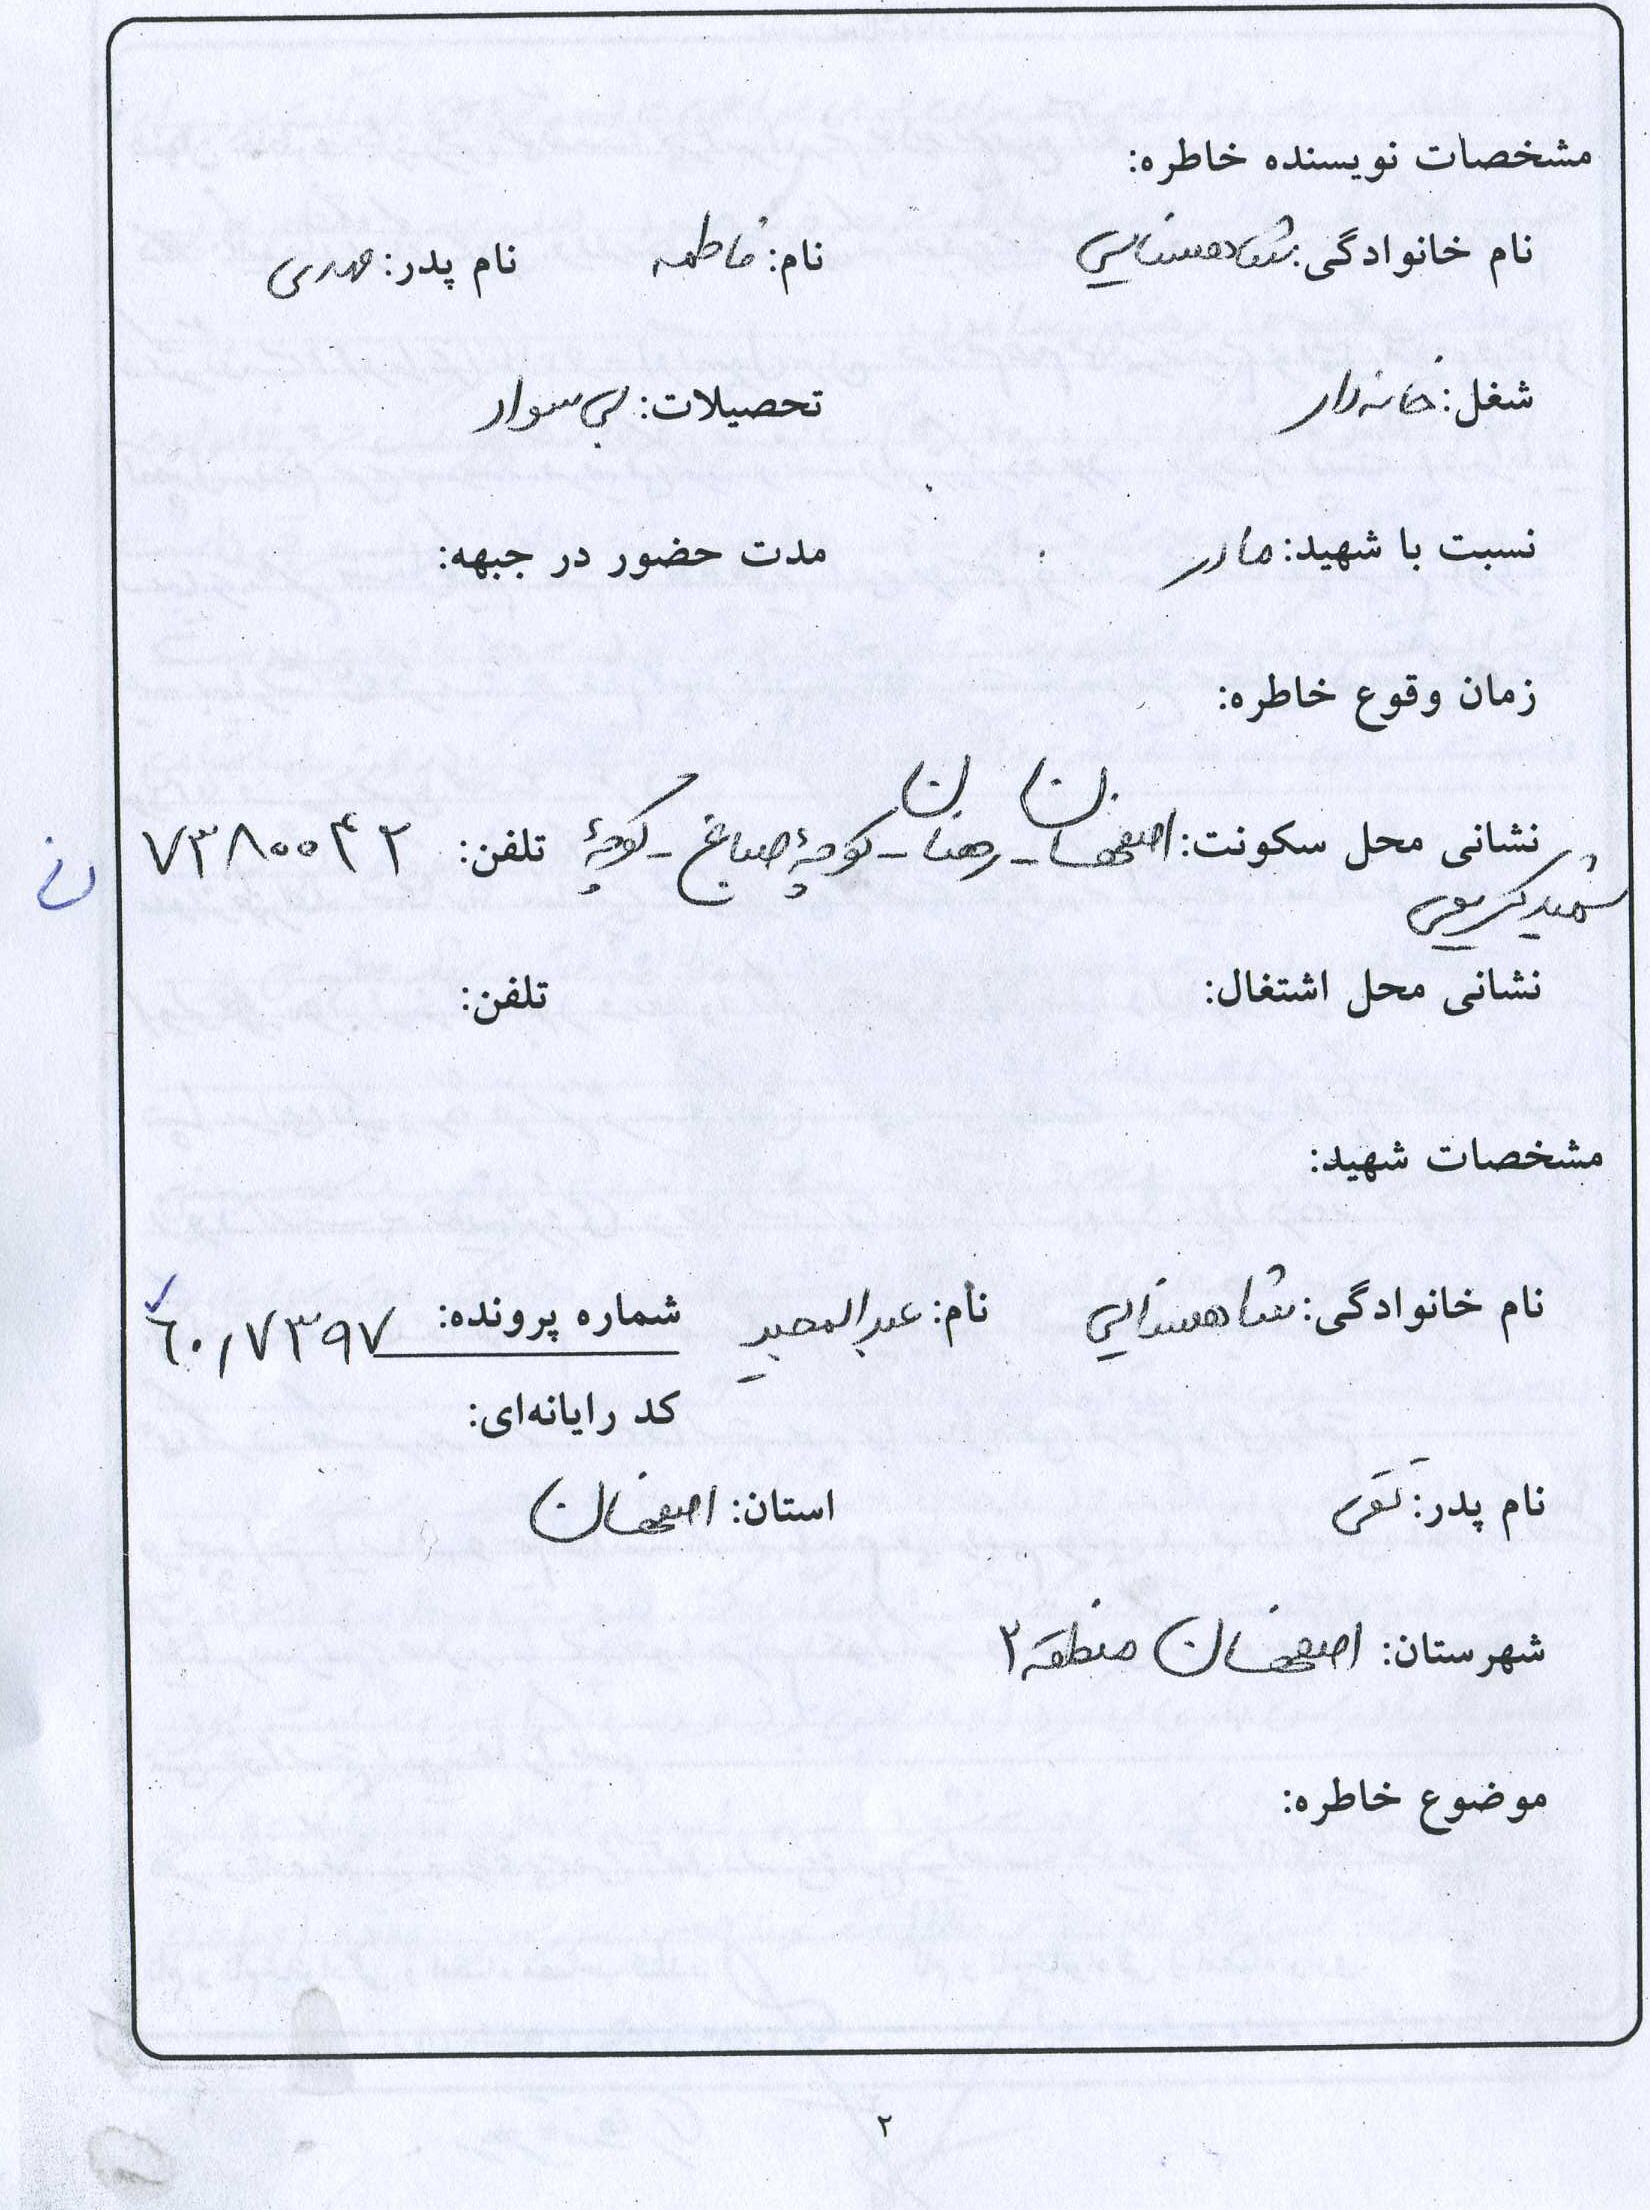 مشخصات نویسنده خاطره:
نام خانوادگی: شاهسنایی نام: فاطمه نام پدر: مهدی
شغل: خانه‌دار تحصیلات: بی سواد
نسبت با شهید: مادر مدت حضور در جبهه:
زمان وقوع خاطره:
نشانی محل سکونت: اصفهان - رهنان - کوچۀ صباغ - کوچۀ تلفن: ۷۳۸۰۰۴۲
شهید کریمی
ن
نشانی محل اشتغال: تلفن:
مشخصات شهید:
نام خانوادگی: شاهسنایی نام: عبدالمجید شماره پرونده: ۶۰٫۷۳۹۷
کد رایانه‌ای:
نام پدر: تقی استان: اصفهان
شهرستان: اصفهان منطقه ۲
موضوع خاطره:
۲